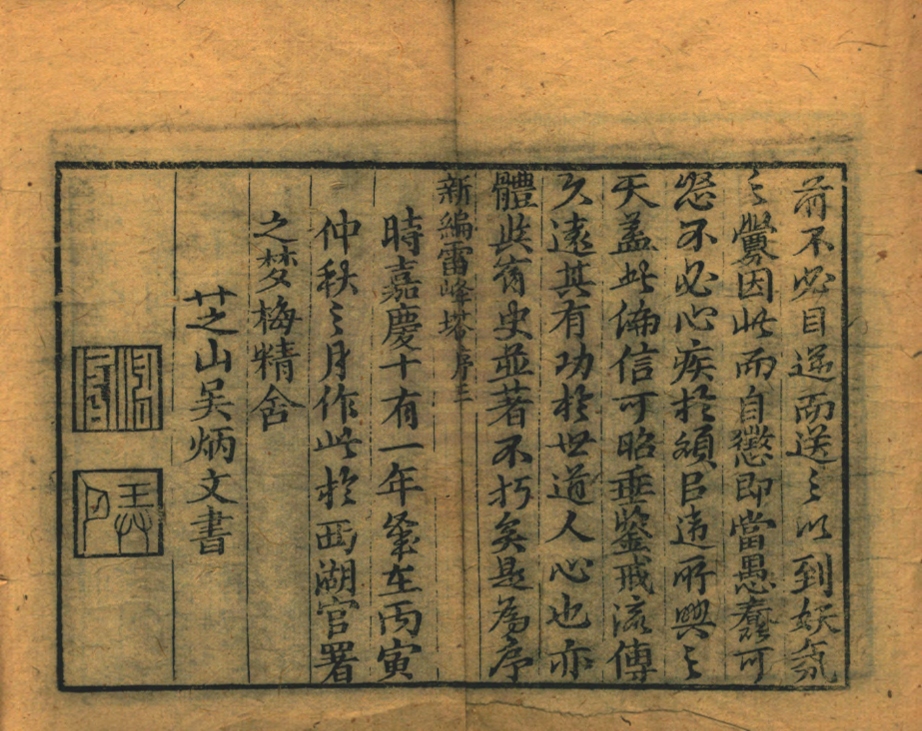 前不必目逆而送之以到妖氛
之釁因此而自懲即當愚蠢可
不必心疾於違所興之
天蓋此編信可昭垂鑒戒流傳
久遠其有功於世道人心也亦
體史並著不朽矣是為序
新編雷峰塔 序 三
時嘉慶十有一年歲在丙寅
仲秋之月作此於西湖官署
之梦梅精舍
芝山吳炳文書